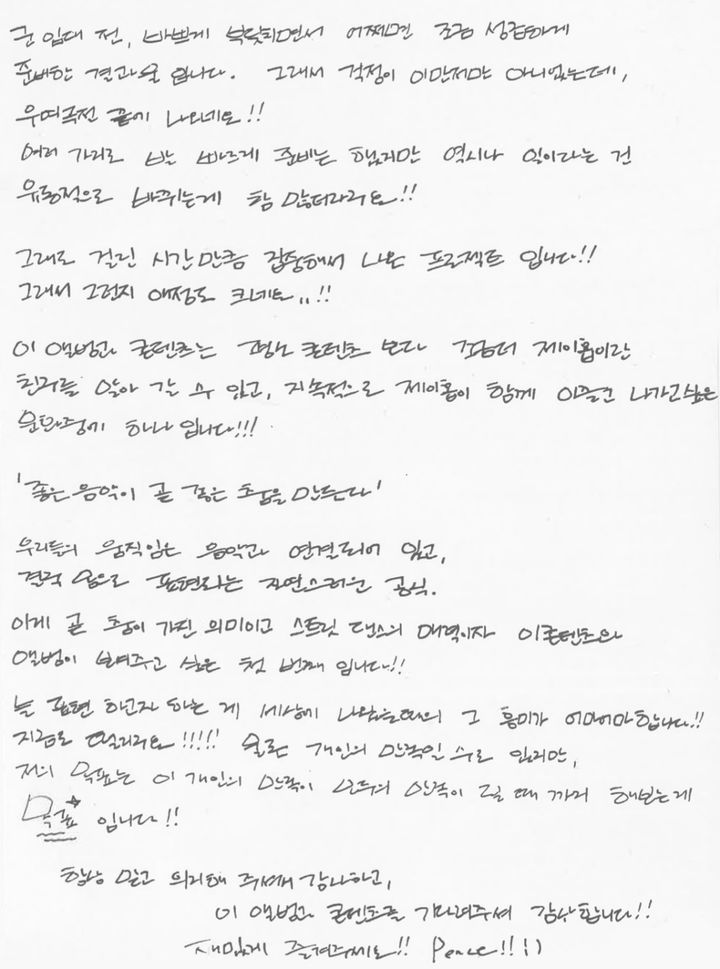 군 입대 전, 바쁘게 부랒치면서 어쩌면 조금 성급하게
준비한 결과물 입니다. 그래서 걱정이 이만저만 아니었는데,
우여곡절 끝에 나오네요!!
여러 가지로 발 빠르게 준비는 했지만 역시나 일이라는 건
유동적으로 바뀌는게 참 많더라구요!!
그래도 걸린 시간만큼 집중해서 나온 프로젝트 입니다!!
그래서 그런지 애정도 크네요..!!
이 앨범과 콘텐츠는 그 어느 콘텐츠 보다 조금 더 제이홉이란
친구를 알아 갈 수 있고, 지속적으로 제이홉이 함께 이끌고 나가고 싶은
문화중에 하나 입니다!!!
'좋은 음악이 곧 좋은 춤을 만든다'
우리들의 움직임는 음악과 연결되어 있고,
결국 춤으로 표현되는 자연스러운 공식.
이게 곧 춤이 가진 의미이고 스트릿 댄스의 매력이자 이 콘텐츠와
앨범이 보여주고 싶은 첫 번째 입니다!!
늘 표현 하고자 하는 게 세상에 나왔을때의 그 흥미가 어마어마합니다!!
지금도 떨리구요!!!!! 물론 개인의 만족일 수도 있지만,
저의 목표는 이 개인의 만족이 모두의 만족이 될 때 까지 해보는게
목표 입니다!!
항상 믿고 의지해 주셔서 감사하고,
이 앨범과 콘텐츠를 기다려주셔 감사합니다!!
재밌게 즐겨주세요!! Peace!! :)